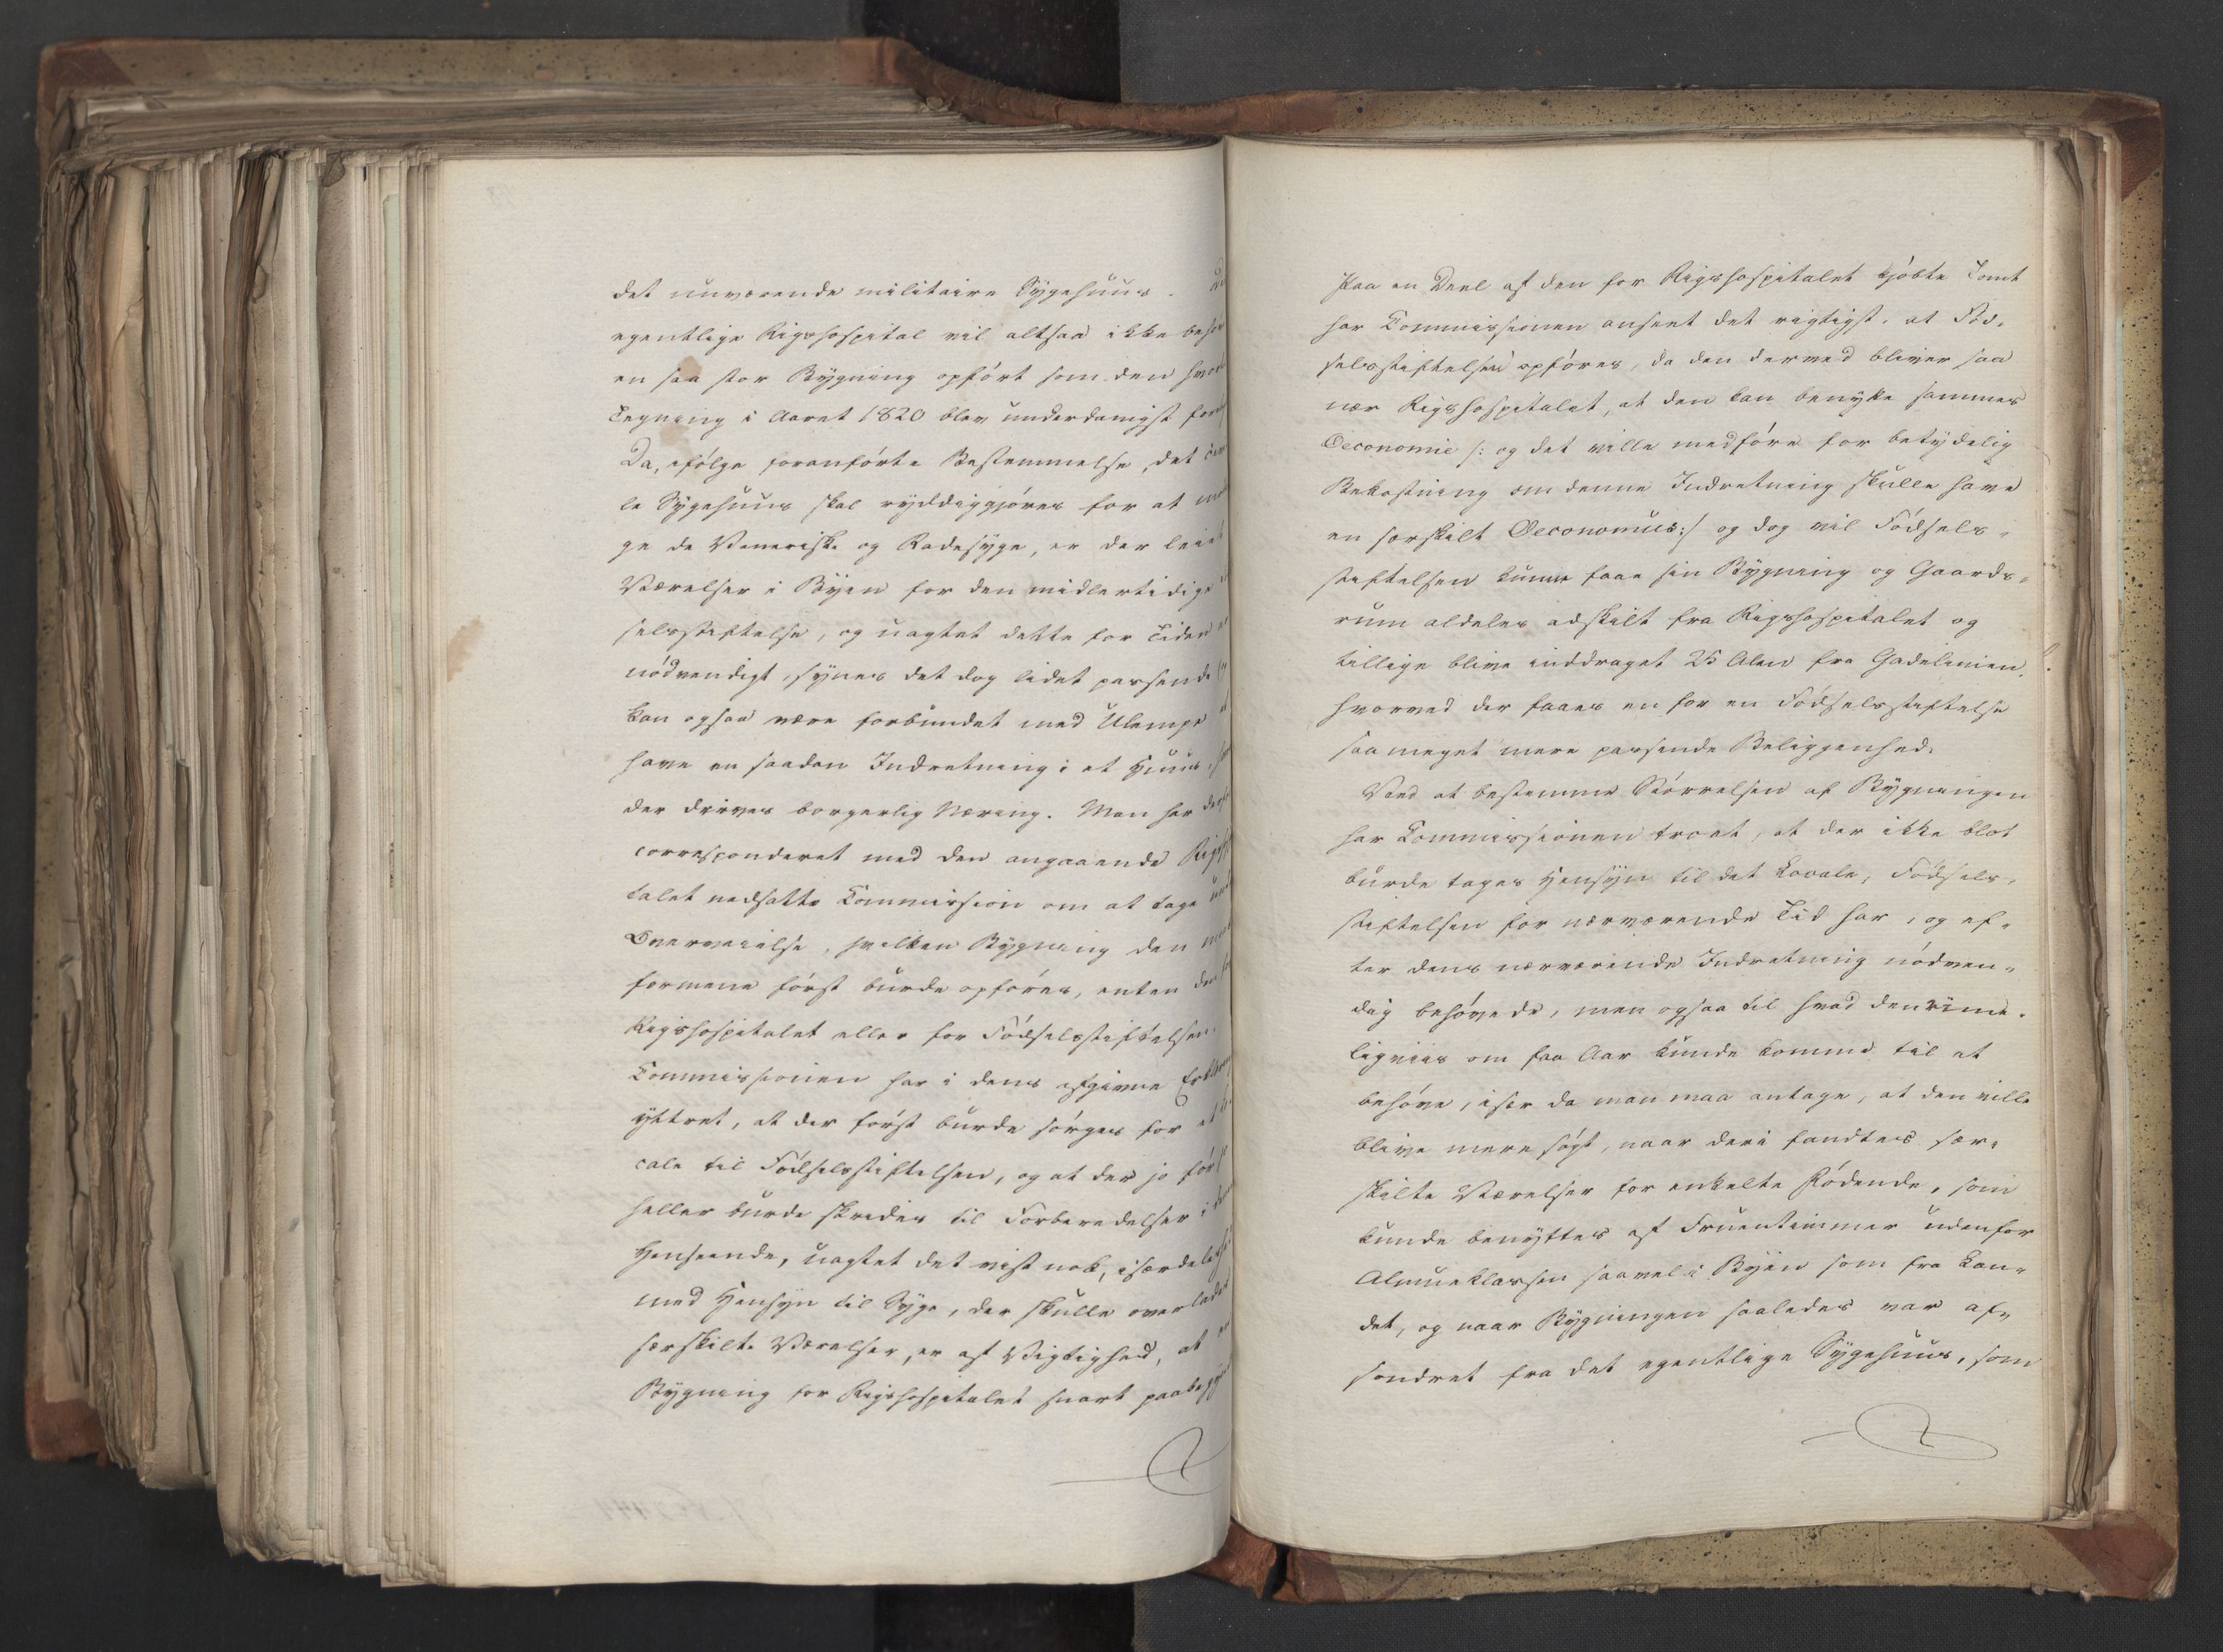 det nuværende militaire Sygehuus.
egentlige Rigshospital vil altsaa ikke behø
en saa stor Bygning opført som den hvor
Tegning i Aaret 1820 blev underdanigst fore
Da, ifølge foranførte Bestemmelse, det civi
le Sygehuus skal ryddiggjøres for at mod
ge de Veneriske og Radesyge, er der leiet
Værelser i Byen for den midlertidige
selsstiftelse, og uagtet dette for Tiden
nødvendigt, synes det dog lidet passende
kan ogsaa være forbundet med Ulempe
have en saadan Indretning i et Huus,
der drives borgerlig Næring. Man har der
corresponderet med den angaaende Rigsh
talet nedsatte Commission om at tage un
Overveielse, hvilken Bygning den
formene først burde opføres, enten den
Rigshospitalet eller for Fødselsstiftelsen.
Commissionen har i dens afgivne Erklær
yttret, at der først burde sørges for et
cale til Fødselsstiftelsen, og at der jo før
heller burde skrides til Forberedelser i
Henseende, uagtet det vist nok, isærdeles
med Hensyn til Syge, der skulle overlades
særskilte Værelser, er af Vigtighed, at
Bygning for Rigshospitalet snart paabegy
Paa en Deel af den for Rigshospitalet kjøbte Tomt
har Commissionen anseet det rigtigst, at Fød-
selsstiftelsen opføres, da den derved bliver saa
nær Rigshospitalet, at den kan benytte sammes
Oeconomie /: og det ville medføre for betydelig
Bekostning om denne Indretning skulle have
en særskilt Oeconomus :/ og dog vil Fødsels-
stiftelsen kunne faae sin Bygning og Gaards-
rum aldeles adskilt fra Rigshospitalet og
tillige blive inddraget 25 Alen fra Gadelinien,
hvorved der faaes en for en Fødselsstiftelse
saa meget mere passende Beliggenhed.
Ved at bestemme Størrelsen af Bygningen
har Commissionen troet, at der ikke blot
burde tages Hensyn til det Locale, Fødsels-
stiftelsen for nærværende Tid har, og ef-
ter dens nærværende Indretning nødven-
dig behøvede, men ogsaa til hvad den rime-
ligviis om faa Aar kunde komme til at
behøve, især da man maa antage, at den ville
blive mere søgt, naar deri fandtes sær-
skilte Værelser for enkelte Fødende, som
kunde benyttes af Fruentimmer udenfor
Almueklassen saavel i Byen som fra Lan-
det, og naar Bygningen saaledes var af-
sondret fra det egentlige Sygehuus, som